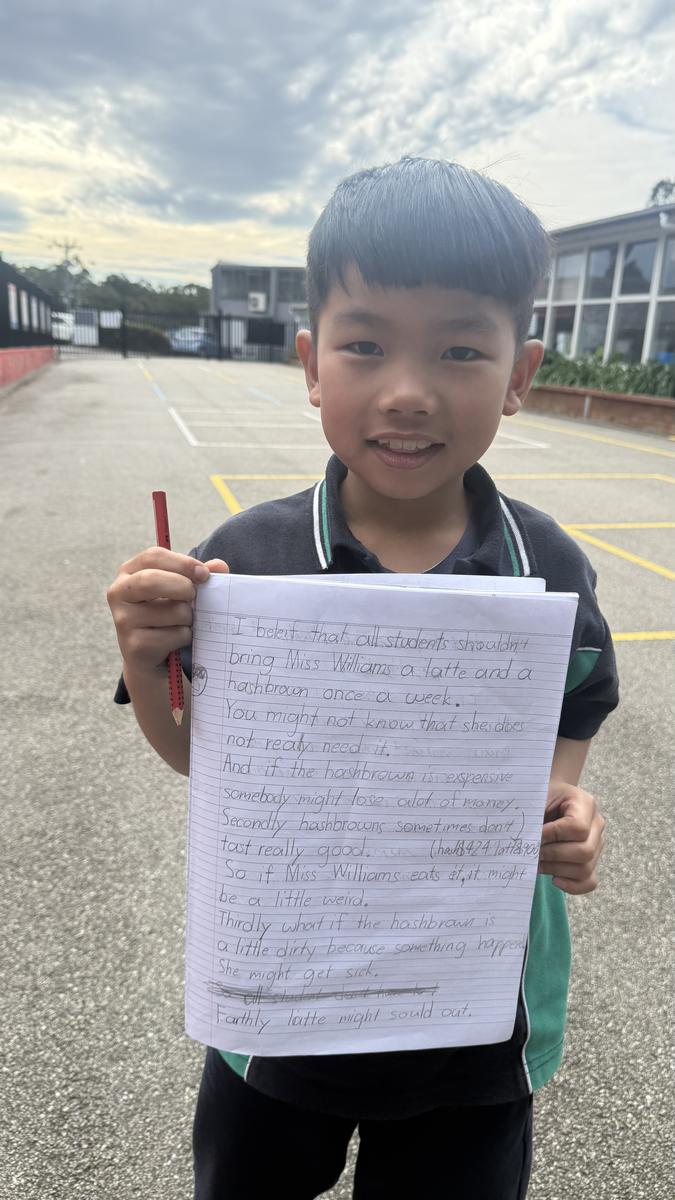 I beleif that all students shouldn't
bring Miss Williams a latte and a
hashbrown once a week.
You might not know that she does
not realy need it.
And if the hashbrown is expensive
somebody might lose alot of money.
Secondly hashbrowns sometimes don't
tast really good.
So if Miss Williams eats it, it might
be a little weird.
Thirdly what if the hashbrown is
a little dirty because something happend
She might get sick.
Forthly latte might sould out.